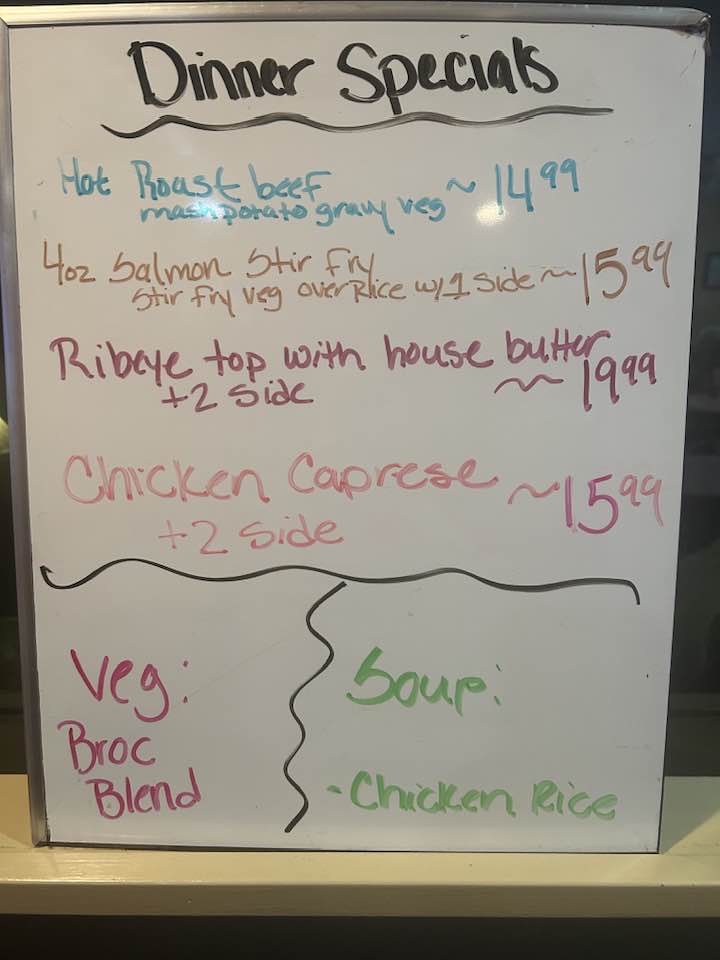 Dinner Specials
Hot Roast beef ~ 14.99
mash potato gravy veg
4oz Salmon Stir fry
Stir fry veg over Rice w/1 side ~ 15.99
Ribeye top with house butter
+2 side ~ 19.99
Chicken Caprese ~ 15.99
+2 side
Veg:
Broc
Blend
Soup:
- Chicken Rice